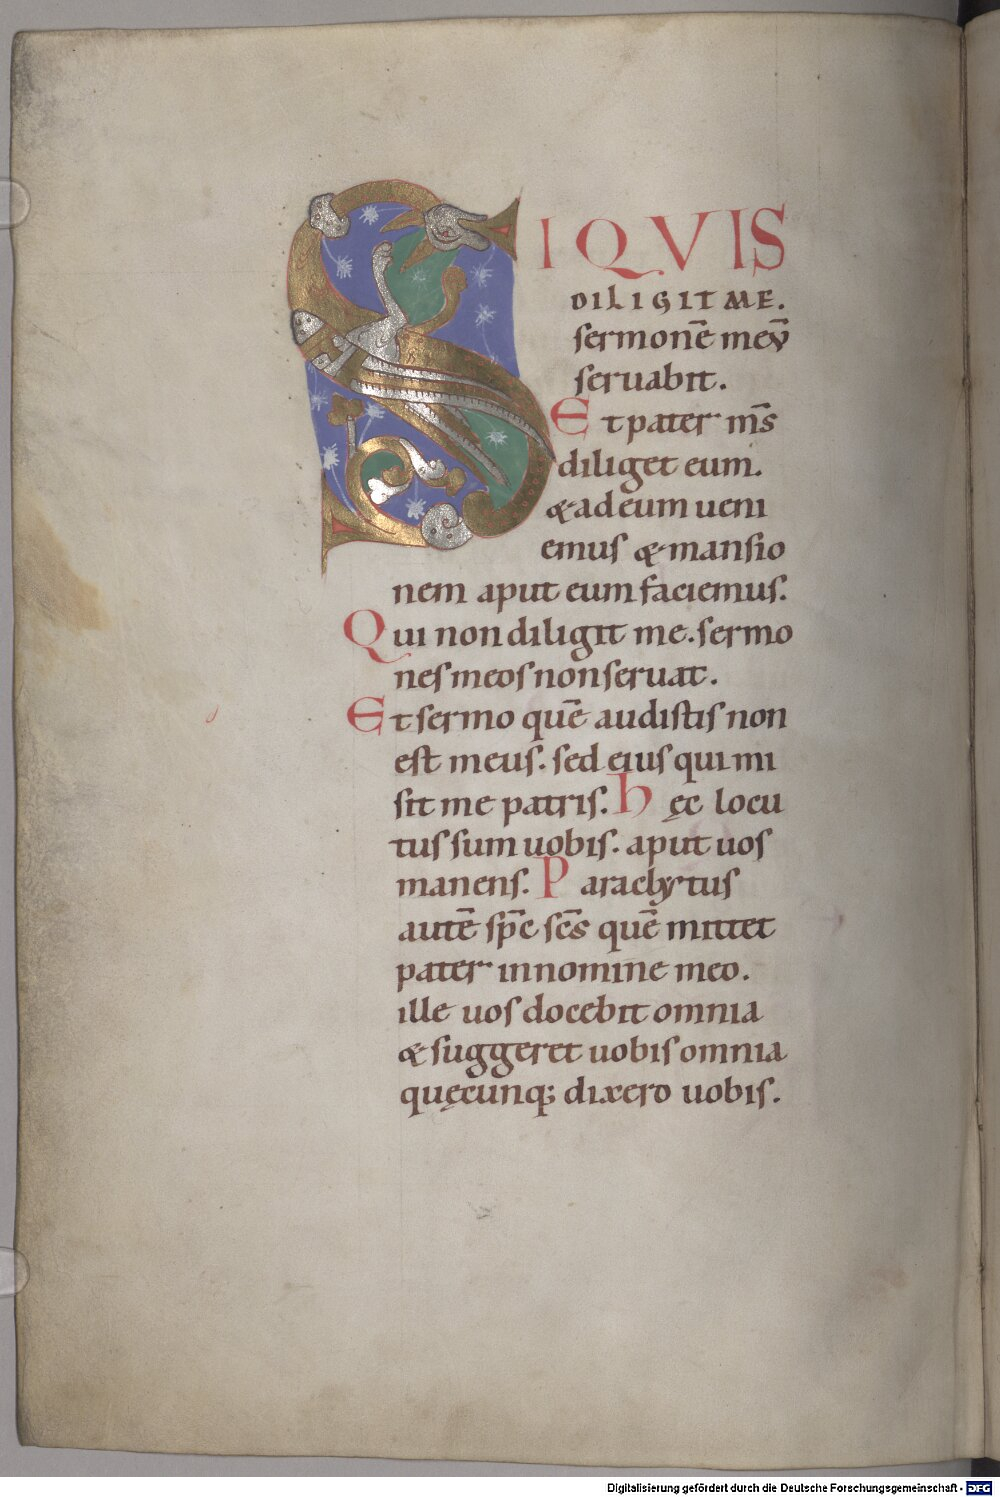 SI QVIS
DILIGIT ME.
sermonē meū
seruabit.
Et pater m̄s
diliget eum.
& ad eum ueni
emus & mansio
nem aput eum faciemus.
Qui non diligit me. sermo
nes meos non seruat.
Et sermo quē audistis non
est meus. sed eius qui mi
sit me patris. hęc locu
tus sum uobis. aput uos
manens. Paraclytus
autē sp̄c sc̄s quē mittet
pater in nomine meo.
ille uos docebit omnia
& suggeret uobis omnia
quęcunq; dixero uobis.
Digitalisierung gefördert durch die Deutsche Forschungsgemeinschaft - DFG